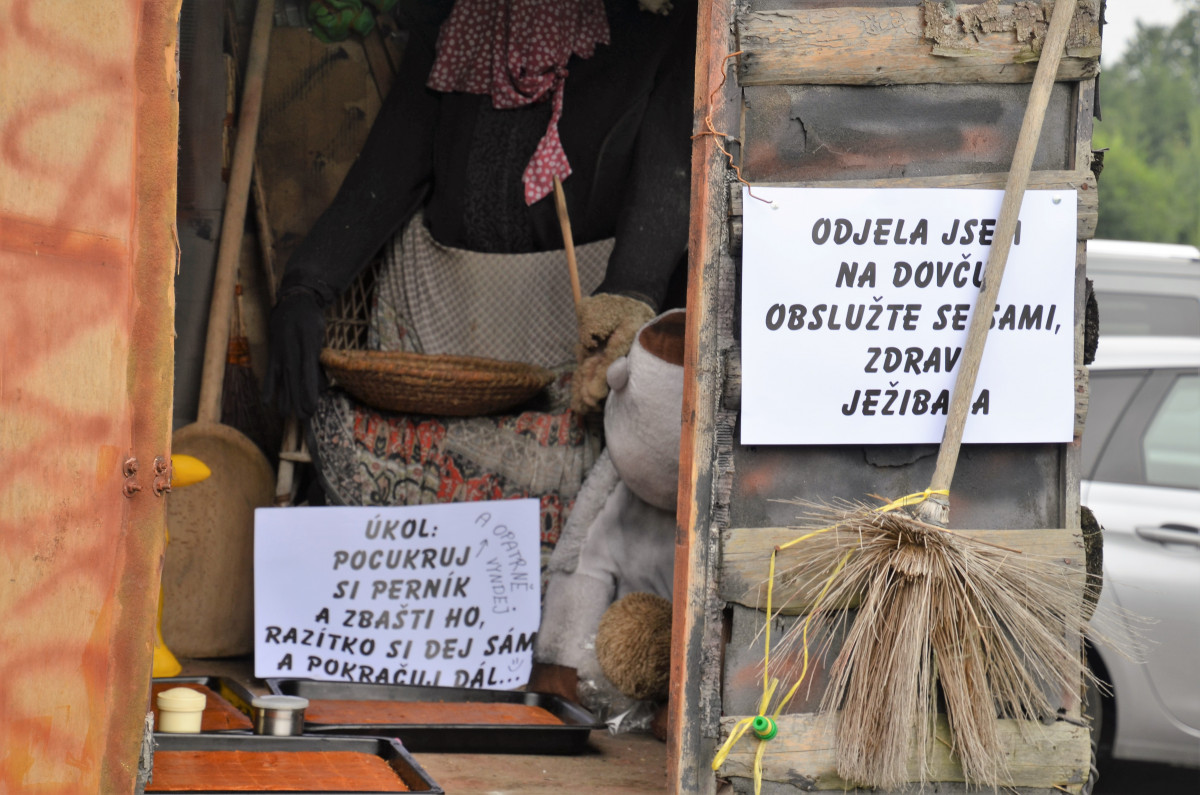 ÚKOL:
POCUKRUJ
SI PERNÍK
A ZBAŠTI HO,
RAZÍTKO SI DEJ SÁM
A POKRAČUJ DÁL...
A OPATRNĚ
VYNDEJ
ODJELA JSEM
NA DOVČU
OBSLUŽTE SE SAMI,
ZDRAVÍ
JEŽIBABA